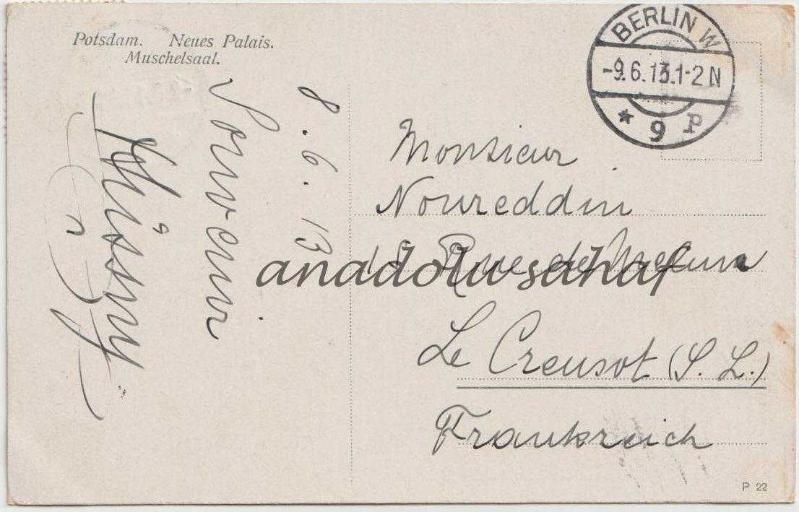 Potsdam. Neues Palais.
Muschelsaal.
8.6.13
Souvenir
BERLIN W
-9.6.13.1-2N
* 9 P
Monsieur
Noureddin
Rue de
Le Creusot (S. L.)
Frankreich
anadolu sahaf
P 22